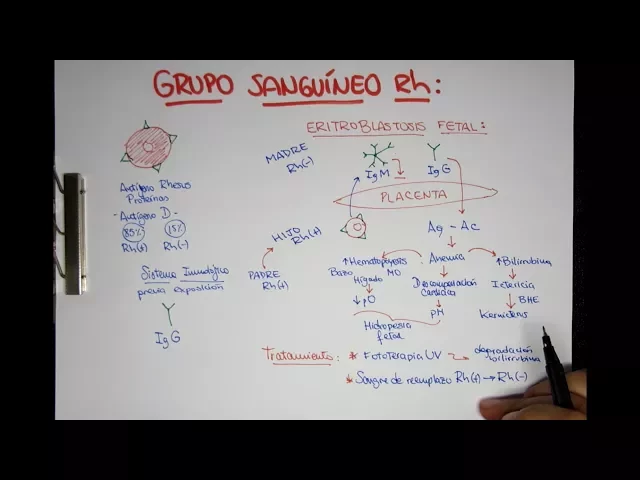 GRUPO SANGUÍNEO Rh:
ERITROBLASTOSIS FETAL:
MADRE
Rh(-)
IgM
IgG
PLACENTA
Antígeno Rhesus
Proteínas
- Antígeno D -
85% 15%
Rh(+) Rh(-)
HIJO Rh(+)
PADRE
Rh(+)
Sistema Inmunológico
previa exposición
IgG
Ag - Ac
↑Hematopoyesis
Bazo MO
Hígado
Anemia
↑Bilirrubina
Descompensación
Cardíaca
Ictericia
BHE
Kernicterus
Hidropesía
fetal
Tratamiento: * Fototerapia UV → degradación
bilirrubina
* Sangre de reemplazo Rh(+) → Rh(-)